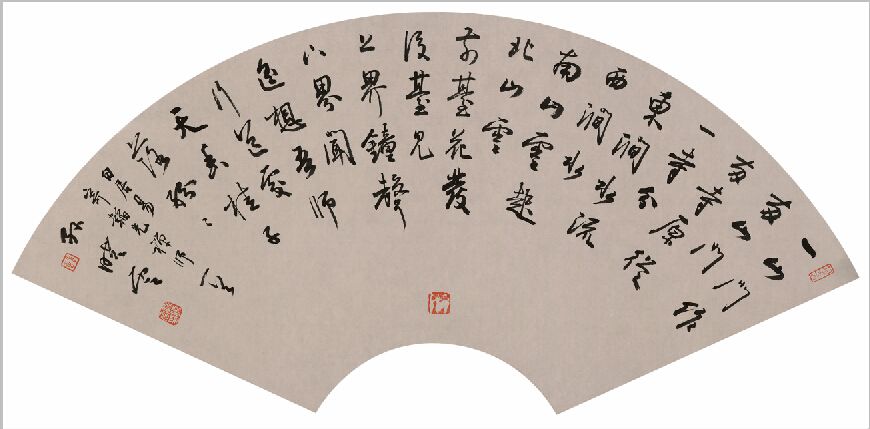 一山門作
兩山門
兩寺原從
一寺分
東澗水流
西澗水
南山雲起
北山雲
前臺花發
後臺見
上界鐘聲
下界聞
遙想吾師
行道處
天香桂子
落紛々
白居易
寄韜光禪師